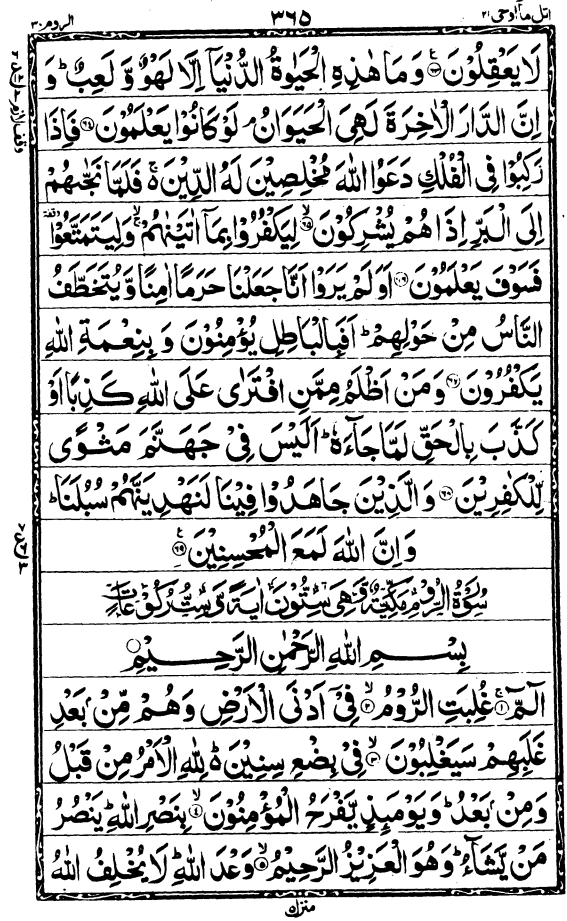 اتل ما اوحی ۲۱ ۳۶۵ الروم ۳۰
لَا يَعْقِلُوْنَ ﴿۶۳﴾ وَمَا هٰذِهِ الْحَيٰوةُ الدُّنْيَاۤ اِلَّا لَهْوٌ وَّ لَعِبٌ ؕ وَ
اِنَّ الدَّارَ الْاٰخِرَةَ لَهِيَ الْحَيَوَانُ ۘ لَوْ كَانُوْا يَعْلَمُوْنَ ﴿۶۴﴾ فَاِذَا
رَكِبُوْا فِي الْفُلْكِ دَعَوُا اللّٰهَ مُخْلِصِيْنَ لَهُ الدِّيْنَ ۚ۬ فَلَمَّا نَجّٰىهُمْ
اِلَى الْبَرِّ اِذَا هُمْ يُشْرِكُوْنَ ﴿۶۵﴾ۙ لِيَكْفُرُوْا بِمَاۤ اٰتَيْنٰهُمْ ۙۚ وَلِيَتَمَتَّعُوْا
فَسَوْفَ يَعْلَمُوْنَ ﴿۶۶﴾ اَوَلَمْ يَرَوْا اَنَّا جَعَلْنَا حَرَمًا اٰمِنًا وَّيُتَخَطَّفُ
النَّاسُ مِنْ حَوْلِهِمْ ؕ اَفَبِالْبَاطِلِ يُؤْمِنُوْنَ وَ بِنِعْمَةِ اللّٰهِ
يَكْفُرُوْنَ ﴿۶۷﴾ وَمَنْ اَظْلَمُ مِمَّنِ افْتَرٰى عَلَى اللّٰهِ كَذِبًا اَوْ
كَذَّبَ بِالْحَقِّ لَمَّا جَآءَهٗ ؕ اَلَيْسَ فِيْ جَهَنَّمَ مَثْوًى
لِّلْكٰفِرِيْنَ ﴿۶۸﴾ وَالَّذِيْنَ جَاهَدُوْا فِيْنَا لَنَهْدِيَنَّهُمْ سُبُلَنَا ؕ
وَاِنَّ اللّٰهَ لَمَعَ الْمُحْسِنِيْنَ ﴿۶۹﴾
سُوْرَةُ الرُّوْمِ مَكِّيَّةٌ وَّهِيَ سِتُّوْنَ اٰيَةً وَّسِتُّ رُكُوْعَاتٍ
بِسْمِ اللّٰهِ الرَّحْمٰنِ الرَّحِيْمِ
الٓمّٓ ﴿۱﴾ۚ غُلِبَتِ الرُّوْمُ ﴿۲﴾ۙ فِيْۤ اَدْنَى الْاَرْضِ وَهُمْ مِّنْۢ بَعْدِ
غَلَبِهِمْ سَيَغْلِبُوْنَ ﴿۳﴾ۙ فِيْ بِضْعِ سِنِيْنَ ؕ۬ لِلّٰهِ الْاَمْرُ مِنْ قَبْلُ
وَمِنْۢ بَعْدُ ؕ وَيَوْمَىِٕذٍ يَّفْرَحُ الْمُؤْمِنُوْنَ ﴿۴﴾ۙ بِنَصْرِ اللّٰهِ ؕ يَنْصُرُ
مَنْ يَّشَآءُ ؕ وَهُوَ الْعَزِيْزُ الرَّحِيْمُ ﴿۵﴾ۙ وَعْدَ اللّٰهِ ؕ لَا يُخْلِفُ اللّٰهُ